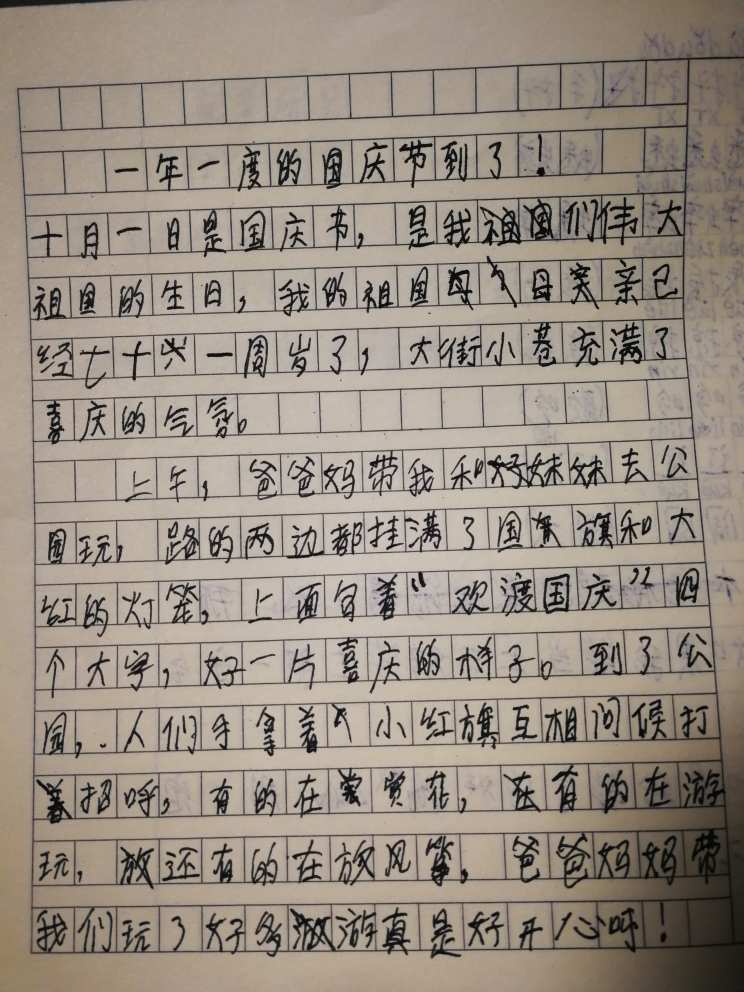 一年一度的国庆节到了！
十月一日是国庆节，是我们伟大
祖国的生日，我的祖国母亲已
经七十一周岁了，大街小巷充满了
喜庆的气氛。
上午，爸爸妈带我和妹妹去公
园玩，路的两边都挂满了国旗和大
红的灯笼，上面写着“欢渡国庆”四
个大字，好一片喜庆的样子。到了公
园，人们手拿着小红旗互相问候打
着招呼，有的在赏花，有的在游
玩，还有的在放风筝，爸爸妈妈带
我们玩了好多游真是好开心呀！